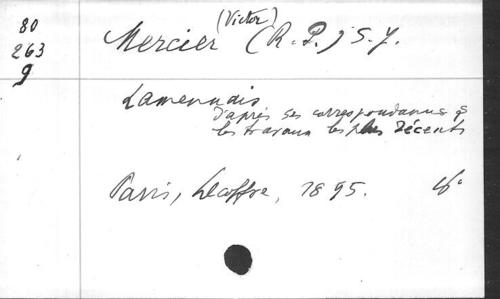 80
263
9
(Victor)
Mercier (R. P.) S. J.
Lamennais
d'après ses correspondances &
les travaux les plus récents
Paris, Lecoffre, 1895.